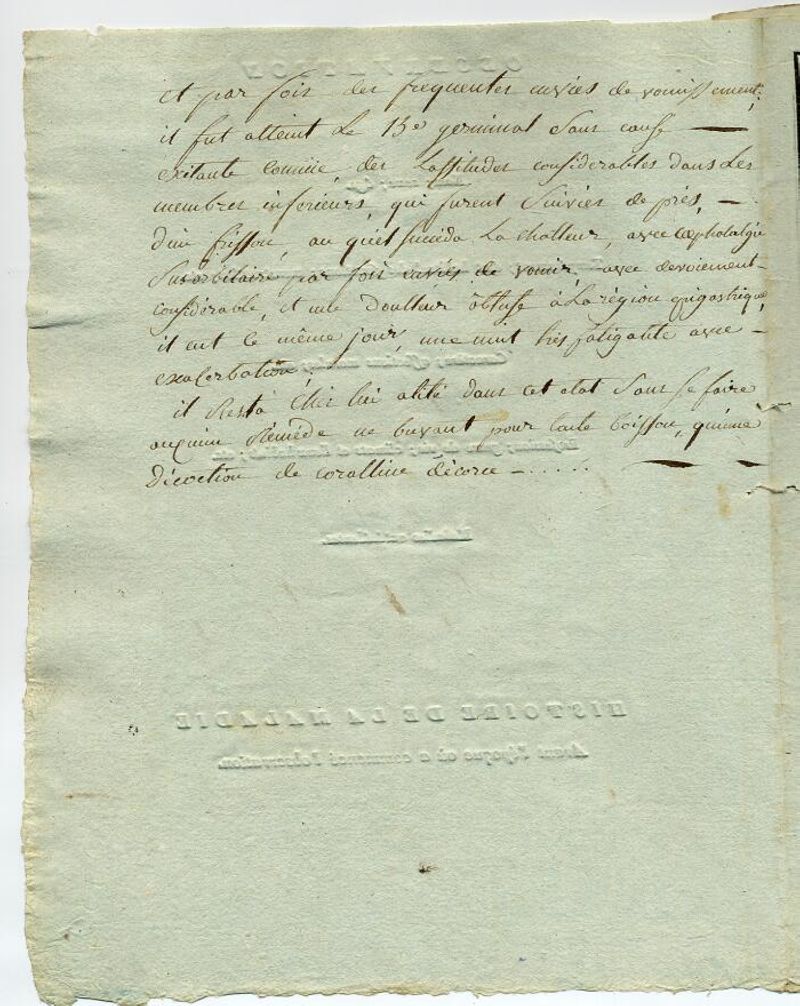 et par fois des frequentes envies de vomissement;
il fut atteint Le 13e germinal Sans cause —
exitante connüe, des Lassitudes considerables dans Les
membres inferieurs, qui furent Suivies de près, —
d'un frisson, au quel succeda La chalheur, avec cephalalgie
Susorbitaire par fois envies de vomir, avec devoiement
considérable, et une doulleur obtuse à La région epigastrique,
il eut ce même jour, une nuit très fatigante avec —
exacerbation,
il resta chés lui alité dans cet etat Sans se faire
aucun Remède ne buvant pour toute boisson, qu'une
décoction de coralline décorce - . . . . . .
HISTOIRE DE LA MALADIE
Avant l'époque où a commencé l'observation.